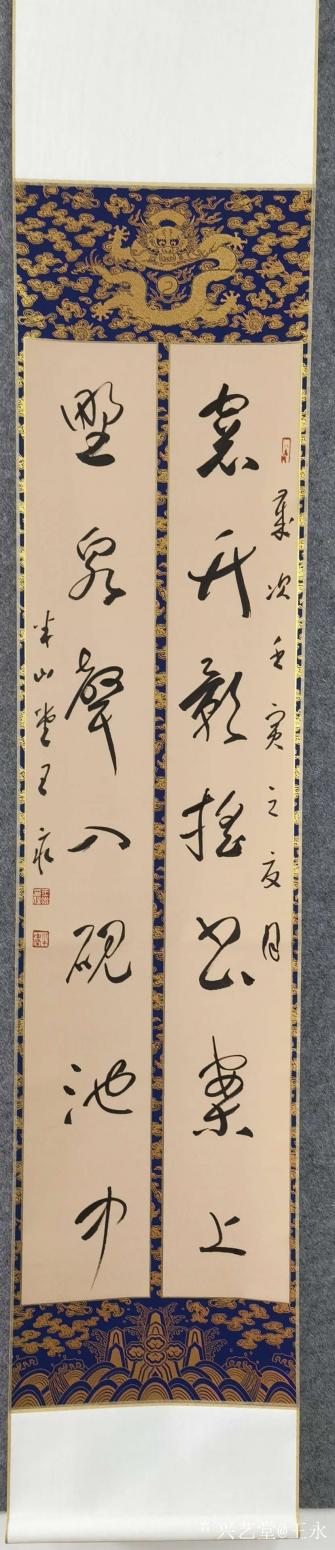 岁次壬寅之夏月
窗竹影摇书案上
野泉声入砚池中
半山堂王永
兴艺堂@王永